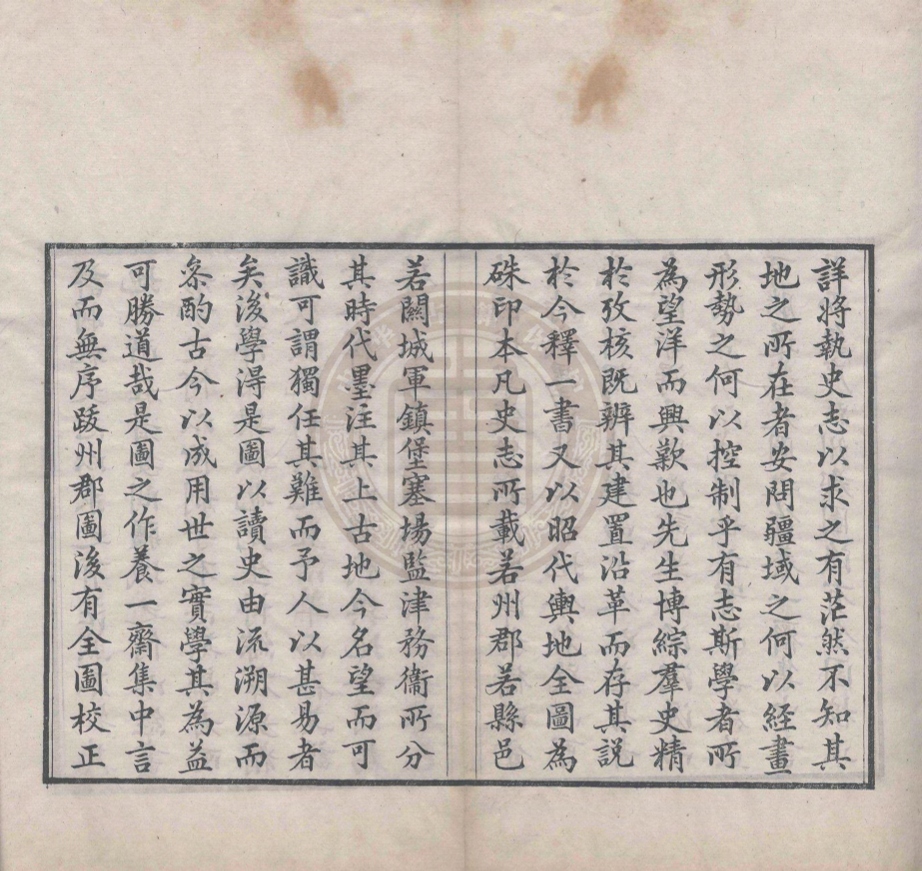 詳將執史志以求之有茫然不知其
地之所在者安問疆域之何以經畫
形勢之何以控制乎有志斯學者所
為望洋而興歎也先生博綜羣史精
於攷核既辨其建置沿革而存其說
於今釋一書又以昭代輿地全圖為
硃印本凡史志所載若州郡若縣邑
若關城軍鎮堡塞場監津務衞所分
其時代墨注其上古地今名望而可
識可謂獨任其難而予人以甚易者
矣後學淂是圖以讀史由流溯源而
叅酌古今以成用世之實學其為益
可勝道哉是圖之作養一齋集中言
及而無序跋州郡圖後有全圖校正